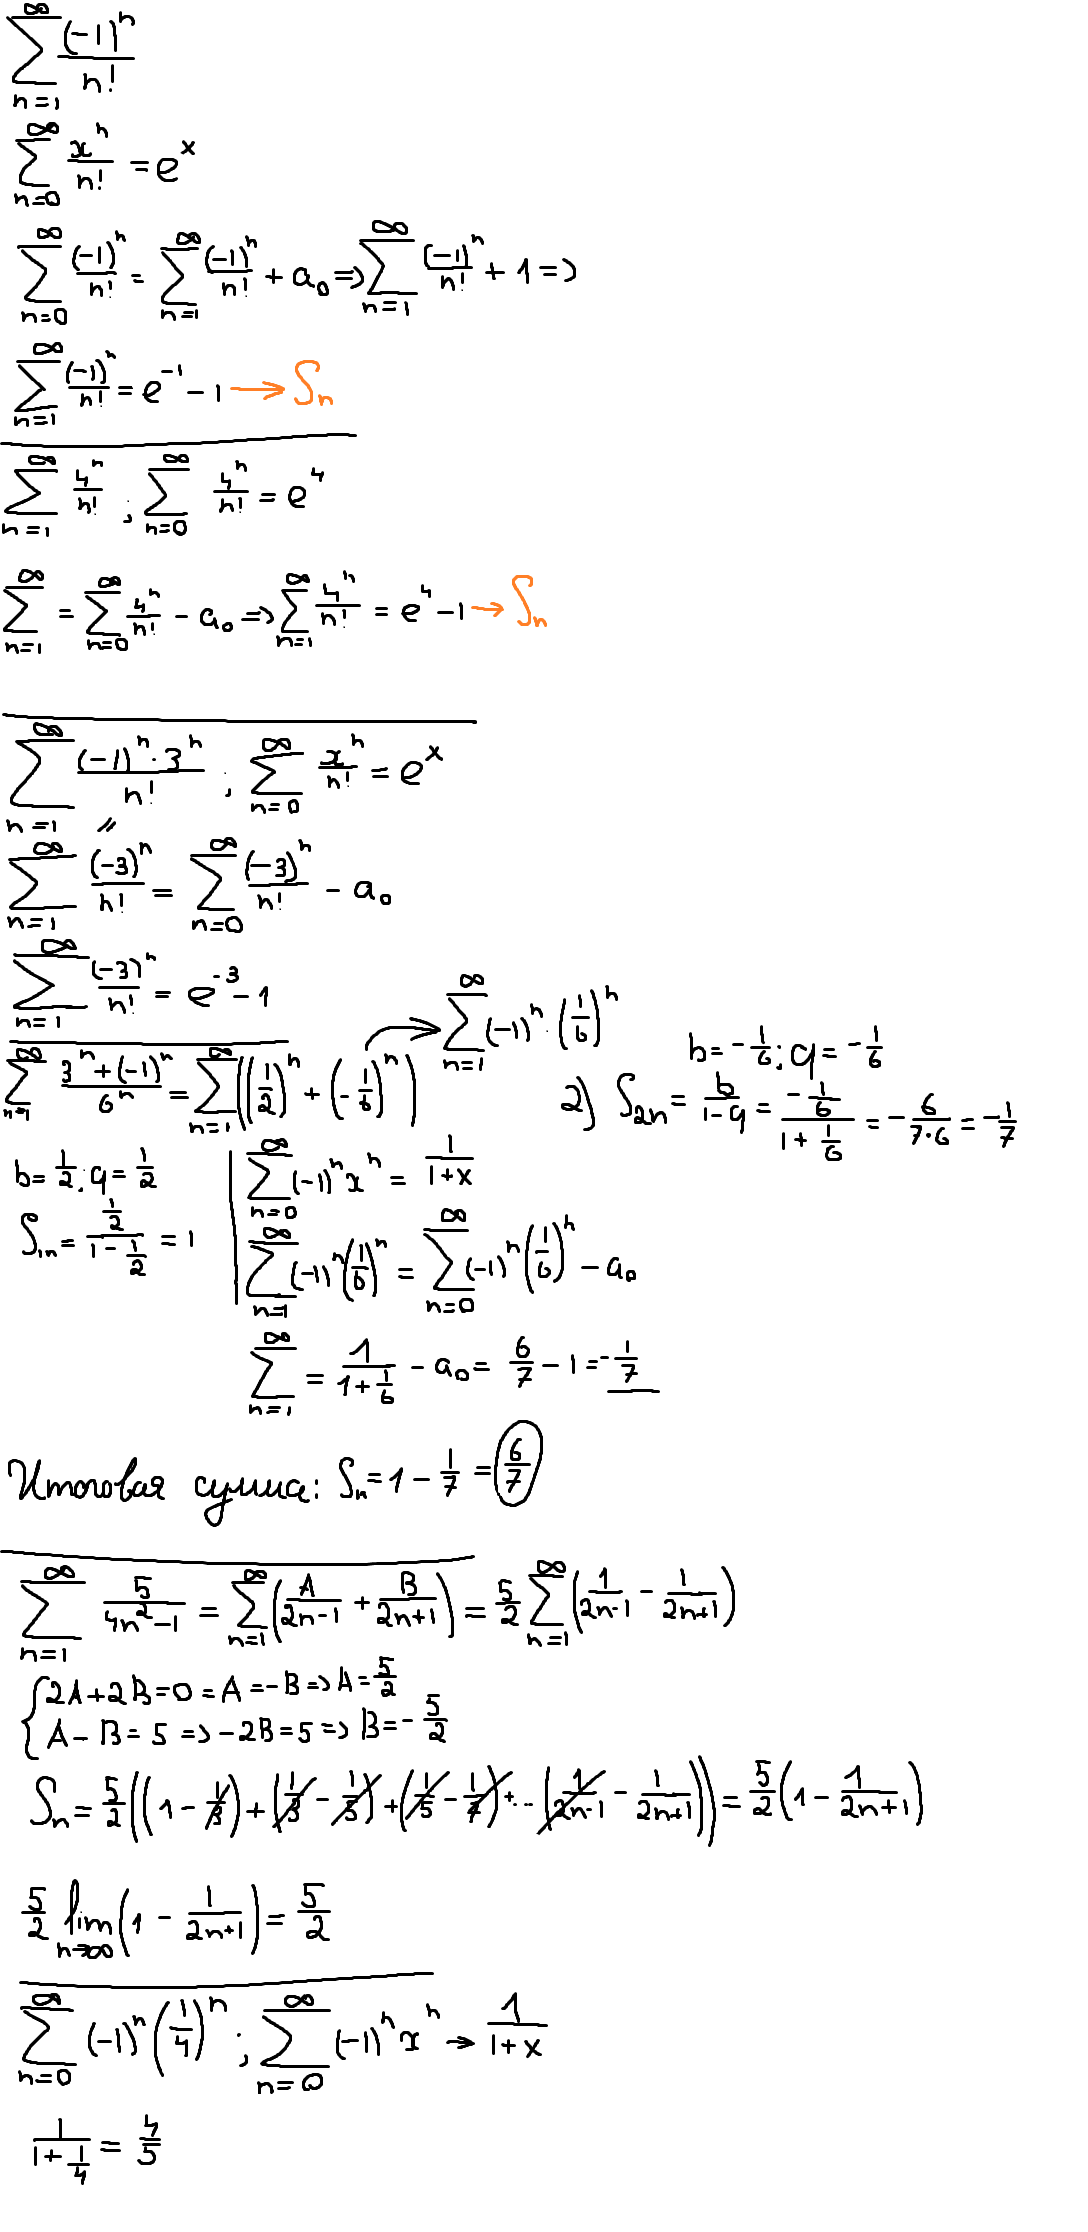 \sum_{n=1}^{\infty} \frac{(-1)^n}{n!}
\sum_{n=0}^{\infty} \frac{x^n}{n!} = e^x
\sum_{n=0}^{\infty} \frac{(-1)^n}{n!} = \sum_{n=1}^{\infty} \frac{(-1)^n}{n!} + a_0 => \sum_{n=1}^{\infty} \frac{(-1)^n}{n!} + 1 =>
\sum_{n=1}^{\infty} \frac{(-1)^n}{n!} = e^{-1} - 1 → S_n
\sum_{n=1}^{\infty} \frac{4^n}{n!} ; \sum_{n=0}^{\infty} \frac{4^n}{n!} = e^4
\sum_{n=1}^{\infty} = \sum_{n=0}^{\infty} \frac{4^n}{n!} - a_0 => \sum_{n=1}^{\infty} \frac{4^n}{n!} = e^4 - 1 → S_n
\sum_{n=1}^{\infty} \frac{(-1)^n \cdot 3^n}{n!} ; \sum_{n=0}^{\infty} \frac{x^n}{n!} = e^x
=
\sum_{n=1}^{\infty} \frac{(-3)^n}{n!} = \sum_{n=0}^{\infty} \frac{(-3)^n}{n!} - a_0
\sum_{n=1}^{\infty} \frac{(-3)^n}{n!} = e^{-3} - 1
\sum_{n=1}^{\infty} \frac{3^n + (-1)^n}{6^n} = \sum_{n=1}^{\infty} ((\frac{1}{2})^n + (-\frac{1}{6})^n) → \sum_{n=1}^{\infty} (-1)^n \cdot (\frac{1}{6})^n
b = \frac{1}{2} ; q = \frac{1}{2}
S_{1n} = \frac{\frac{1}{2}}{1 - \frac{1}{2}} = 1
\sum_{n=0}^{\infty} (-1)^n x^n = \frac{1}{1+x}
\sum_{n=1}^{\infty} (-1)^n (\frac{1}{6})^n = \sum_{n=0}^{\infty} (-1)^n (\frac{1}{6})^n - a_0
\sum_{n=1}^{\infty} = \frac{1}{1 + \frac{1}{6}} - a_0 = \frac{6}{7} - 1 = -\frac{1}{7}
b = -\frac{1}{6} ; q = -\frac{1}{6}
2) S_{2n} = \frac{b}{1-q} = \frac{-\frac{1}{6}}{1 + \frac{1}{6}} = -\frac{6}{7 \cdot 6} = -\frac{1}{7}
Итоговая сумма: S_n = 1 - \frac{1}{7} = \frac{6}{7}
\sum_{n=1}^{\infty} \frac{5}{4n^2-1} = \sum_{n=1}^{\infty} (\frac{A}{2n-1} + \frac{B}{2n+1}) = \frac{5}{2} \sum_{n=1}^{\infty} (\frac{1}{2n-1} - \frac{1}{2n+1})
{ 2A + 2B = 0 = A = -B => A = \frac{5}{2}
A - B = 5 => -2B = 5 => B = -\frac{5}{2}
S_n = \frac{5}{2} ((1 - \frac{1}{3}) + (\frac{1}{3} - \frac{1}{5}) + (\frac{1}{5} - \frac{1}{7}) + .. (\frac{1}{2n-1} - \frac{1}{2n+1})) = \frac{5}{2} (1 - \frac{1}{2n+1})
\frac{5}{2} \lim_{n→∞} (1 - \frac{1}{2n+1}) = \frac{5}{2}
\sum_{n=0}^{\infty} (-1)^n (\frac{1}{4})^n ; \sum_{n=0}^{\infty} (-1)^n x^n → \frac{1}{1+x}
\frac{1}{1 + \frac{1}{4}} = \frac{4}{5}